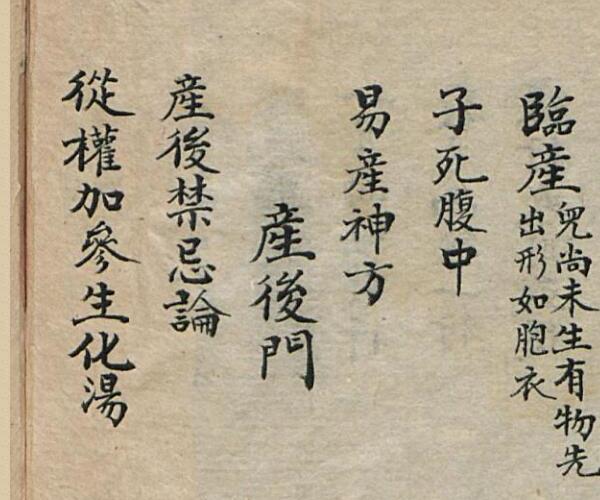 臨産兒尚未生有物先出形如胞衣
子死腹中
易産神方
産後門
産後禁忌論
從權加參生化湯